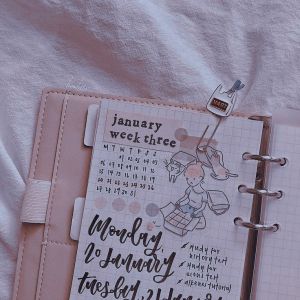 january
week three
M T W T F S S
01 02 03 04 05
06 07 08 09 10 11 12
13 14 15 16 17 18 19
20 21 22 23 24 25 26
27 28 29 30 31
Monday,
20 January
study for
history test
study for
econs test
tutorial
tuesday, 21 January